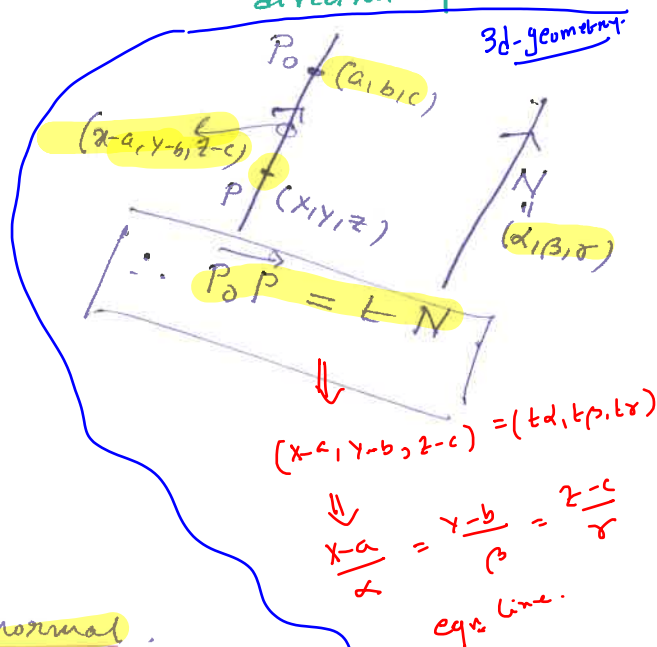 3d-geometry.
P₀ (a,b,c)
(x-a, y-b, z-c)
P (x,y,z)
N
||
(α,β,γ)
∴ P₀P = t N
⇓
(x-a, y-b, z-c) = (tα, tβ, tγ)
⇓
x-a/α = y-b/β = z-c/γ
eqn. line.
normal.